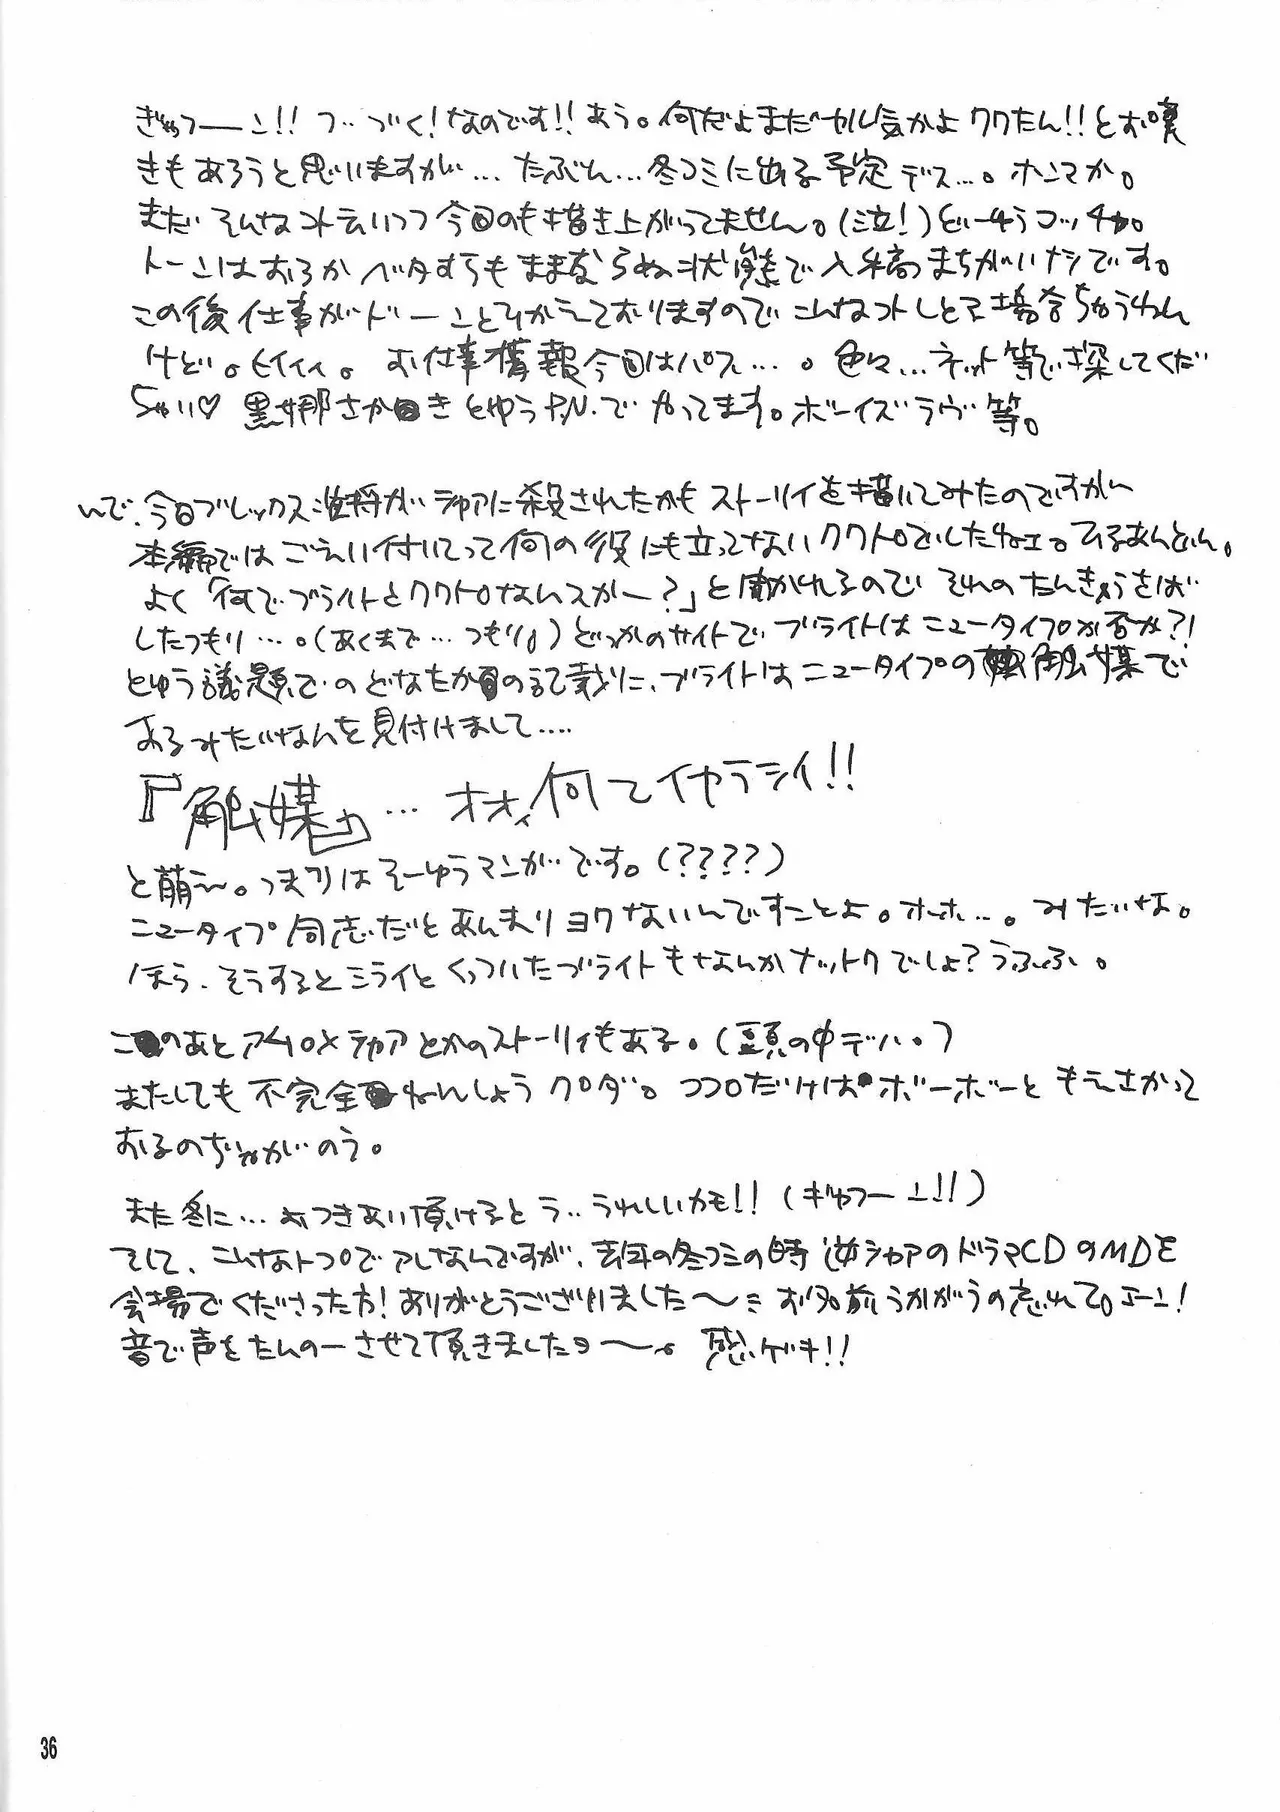 ぎゅっつーーン!! つ‥づく!なのです!!あう。何だよまだヤル気かよクワたん!!とお嘆
きもあろうと思いますが…たぶん…冬コミに出る予定デス…。ホンマか。
まだそんなコト云いつつ今回のも描き上がってません。(泣!)どーゆうコッチャ。
トーンはおろかベタすらもままならぬ状態で入稿まちがいナシです。
この後仕事がドーーンとひかえておりますのでこんなコトしとる場合ちゃうねん
けど。ヒイィィ。 お仕事情報今回はパス…。色々…ネット等で探してくだ
ちゃい♡ 黒娜さかきとゆうP.N.でやってます。ボーイズラヴ等。
んで、今回ブレックス准将がシャアに殺されたかもストーリィを描いてみたのですがー
本編ではごえい付いてって何の役にも立ってないクワトロでしたねェ。てるあんどん。
よく「何でブライトとクワトロなんスかー?」と聞かれるのでそれのたんきゅうをば
したつもり…。(あくまで…つもり。)どっかのサイトでブライトはニュータイプか否か?!
とゆう議題でのどなたかの記載に、ブライトはニュータイプの触媒で
あるみたいなんを見付けまして….
『触媒』… オオィ何てイヤラシイ!!
と萌え〜。つまりはそーゆうマンガです。(????)
ニュータイプ同志だとあんまりヨクないんですことよ。ホーホ…。みたいな。
ほら、そうするとミライとくっついたブライトもなんかナットクでしょ?うふふ。
このあとアムロ×シャアとかのストーリィもある。(頭の中デハ。)
またしても不完全ねんしょうクワダ。ココロだけはボーボーともえさかって
おるのぢゃがのう。
また冬に…おつきあい頂けるとう‥うれしいカモ!!(ぎゅつーーン!!)
そして、こんなトコでアレなんですが、去年の冬コミの時逆シャアのドラマCDのMDを
会場でくださった方!ありがとうございました〜 お名前うかがうの忘れて。エーン!
音で声をたんのーさせて頂きましたヨ〜〜。 感ゲキ!!
36